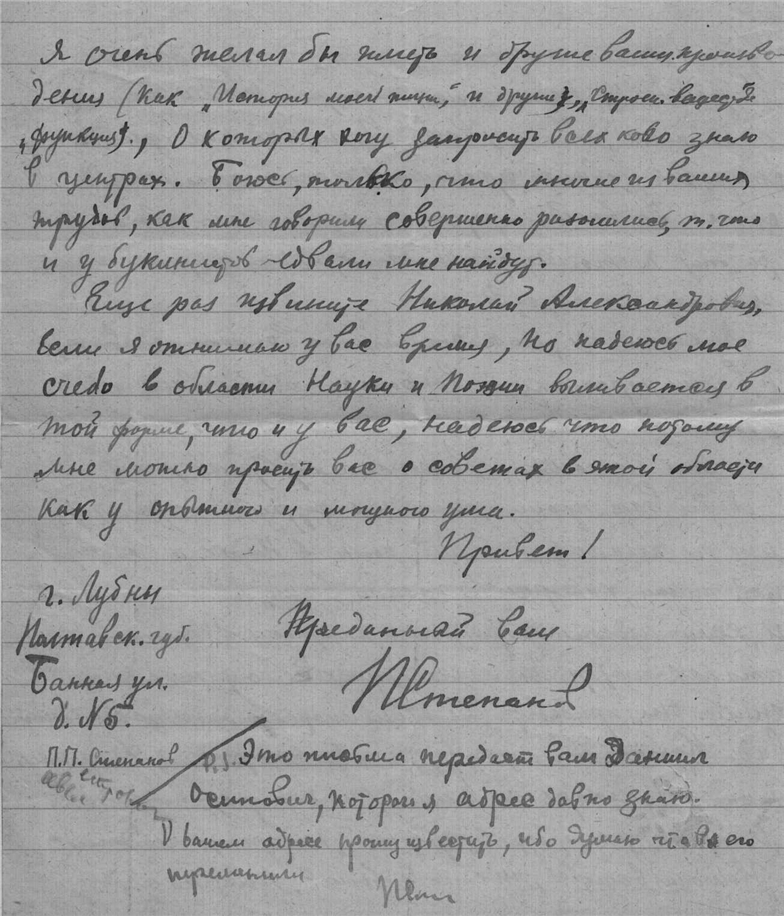 Я очень желал бы иметь и другие ваши произве-
дения (как „История моей жизни," и другие, „Строен. веществ
„функция"., О которых могу запросить всех ково знаю
в центрах. Боюсь, только, что многие из ваших
трудов, как мне говорили совершенно разошлись, т. что
и у букинистов едвали мне найдут.
Еще раз извините Николай Александрович,
если я отнимаю у вас время, но надеюсь мое
в области Науки и Поэзии выливается в
той форме, что и у вас, надеюсь что потому
мне можно просить вас о советах в этой области
как у опытного и мощного ума.
Привет!
г. Лубны
Полтавск. губ.
Банная ул.
д. №5.
П.П. Степанов
Преданный вам
ПСтепанов
P.S. Это письма передаст вам Даниил
Осипович, которого я адрес давно знаю.
О вашем адресе прошу известить, ибо думаю что его
переменили